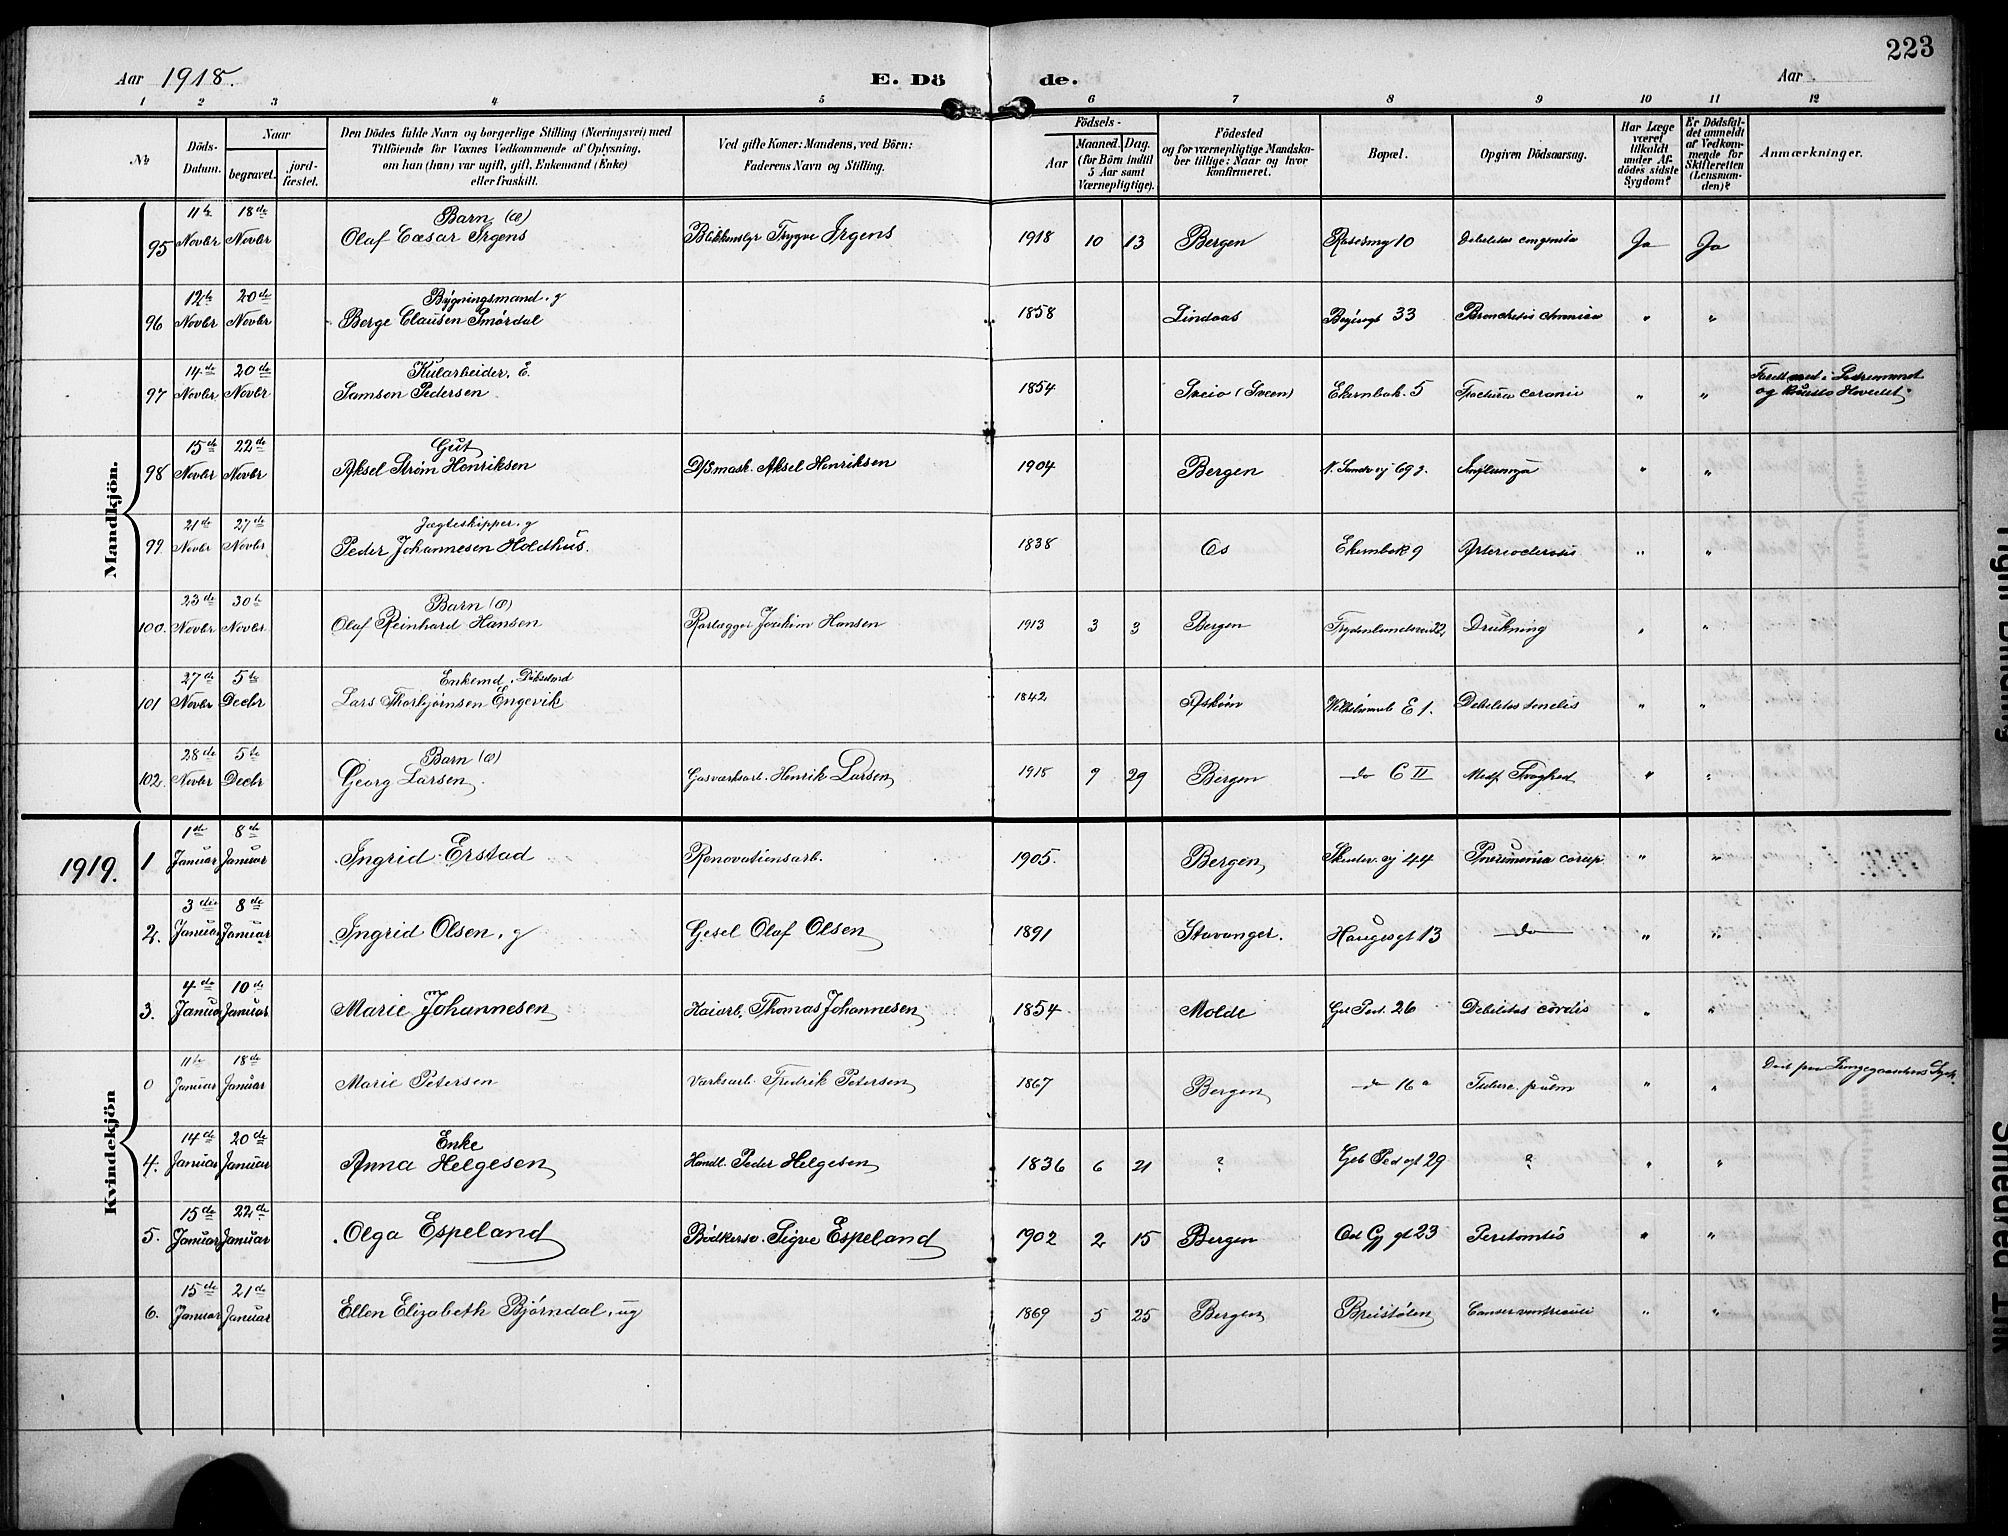 223
Aar 1918. E. Dö de. Aar
1 2 3 4 5 6 7 8 9 10 11 12
No
Döds-Datum.
Naar
begravet.
jordfæstet.
Den Dödes fulde Navn og borgerlige Stilling (Næringsvei) med
Tilföiende for Voxnes Vedkommende af Oplysning,
om han (hun) var ugift, gift, Enkemand (Enke)
eller fraskilt.
Ved gifte Koner: Mandens, ved Börn:
Faderens Navn og Stilling.
Födsels-
Aar
Maaned. Dag.
(for Börn indtil
5 Aar samt
Værnepligtige).
Födested
og for værnepligtige Mandskaber tillige: Naar og hvor
konfirmeret.
Bopæl.
Opgiven Dödsaarsag.
Har Læge
været
tilkaldt
under Afdödes sidste
Sygdom?
Er Dödsfaldet anmeldt
af Vedkommende for
Skifteretten
(Lensmanden)?
Anmærkninger.
Mandkjön.
95 11te Novbr 18de Novbr Barn (æ) Olaf Cæsar Irgens Trygve Irgens 1918 10 13 Bergen 10 Debilitas congenita Ja Ja
96 12te Novbr 20de Novbr Bygningsmand. g Berge Clausen Smørdal 1858 Lindaas 33 Bronchitis chronica " "
97 14de Novbr 20de Novbr Kularbeider. E. Samson Pedersen 1854 Sveio (Sveen) 5 Fractura cranii " " og Hovedet
98 15de Novbr 22de Novbr Gut Aksel Strøm Henriksen D/S mask. Aksel Henriksen 1904 Bergen Influenza " "
99. 21de Novbr 27de Novbr Jægteskipper. g Peder Johannesen Holdhus. 1838 Os 9 " "
100. 23de Novbr 30te Novbr Barn (æ) Olaf Reinhard Hansen Joakim Hansen 1913 3 3 Bergen Drukning " "
101 27de Novbr 5te Decbr Enkemd. Lars Thorbjørnsen Engevik 1842 Askøen E 1. Debilitas senilis " "
102. 28de Novbr 5te Decbr Barn (æ) Georg Larsen. Gasværksarb. Henrik Larsen 1918 9 29 Bergen do C II Medf. Svaghed " "
1919.
Kvindekjön
1 1ste Januar 8de Januar Ingrid Erstad Renovationsarb. 1905. Bergen 44 Pneumonia croup. " "
2. 3die Januar 8de Januar Ingrid Olsen. g Gesel Olaf Olsen 1891 Stavanger. Haugesgt 13 do " "
3. 4de Januar 10de Januar Marie Johannesen Kaiarb. Thomas Johannesen 1854 Molde 26 Debilitas cordis " "
0 11te Januar 18de Januar Marie Petersen Værksarb. Fredrik Petersen 1867 Bergen do 16 a Tuberc. pulm " " Død paa Lungegaardens Syk.
4. 14de Januar 20de Januar Enke Anna Helgesen Handl. Peder Helgesen 1836 6 21 ? 29 ? " "
5. 15de Januar 22de Januar Olga Espeland Bødkersv. Sigve Espeland 1902 2 15 Bergen 23 Peritonitis " "
6. 15de Januar 21de Januar Ellen Elizabeth Bjørndal, ug 1869 5 25 Bergen Breistølen Cancer ventriculi " "